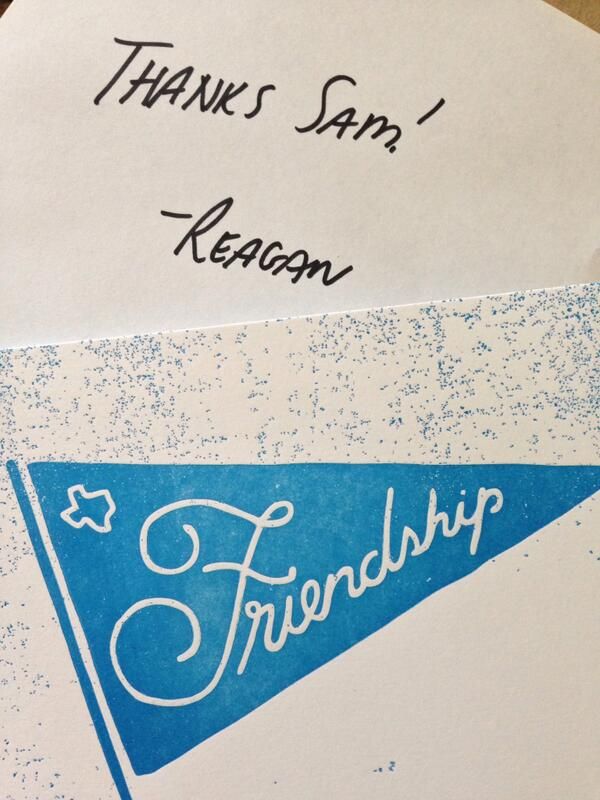 THANKS SAM!
-REAGAN
Friendship